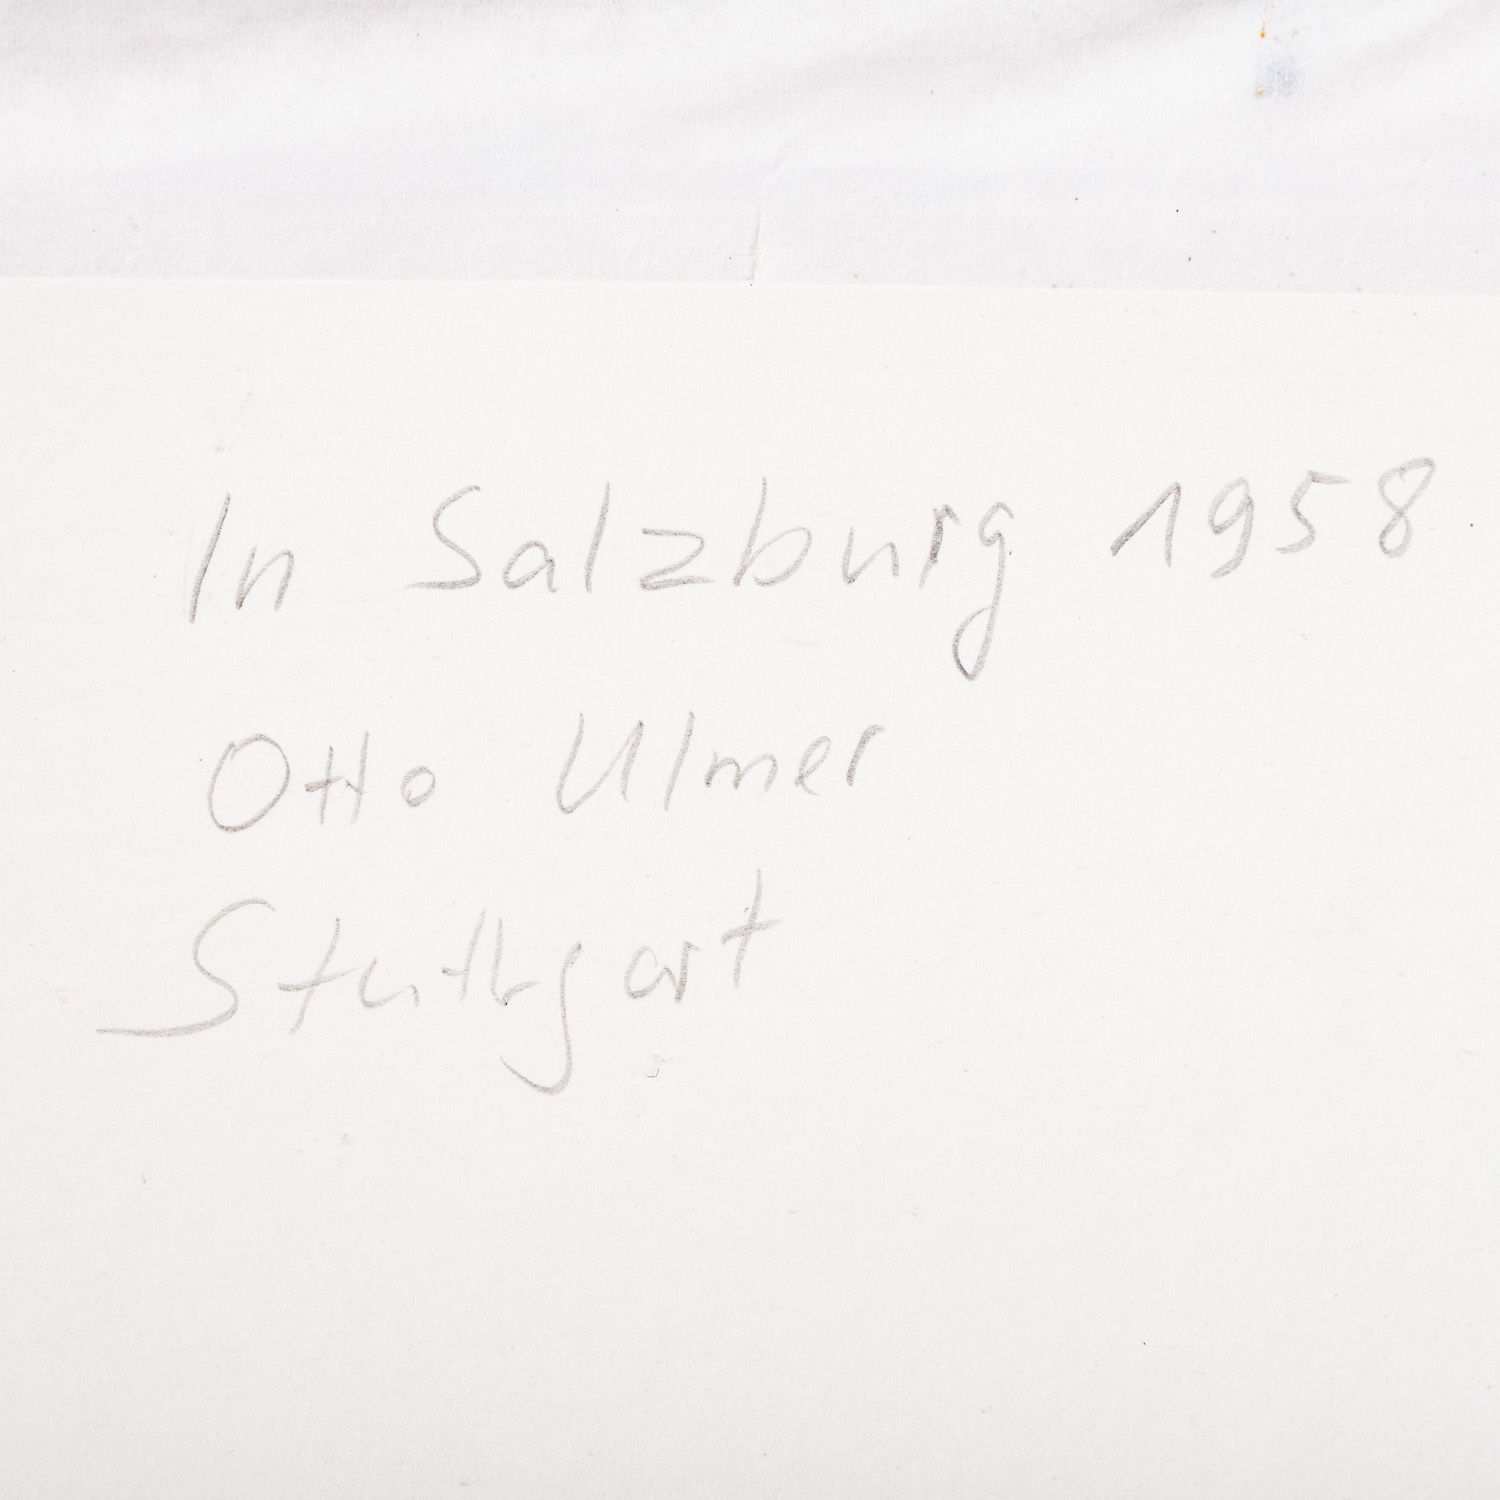 In Salzburg 1958
Otto Ulmer
Stuttgart